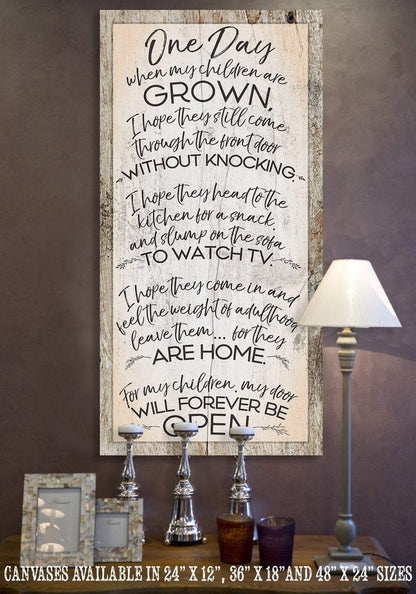 One Day
when my children are
GROWN,
I hope they still come
through the front door
WITHOUT KNOCKING.
I hope they head to the
kitchen for a snack,
and slump on the sofa
TO WATCH TV.
I hope they come in and
feel the weight of adulthood
leave them... for they
ARE HOME.
For my children, my door
WILL FOREVER BE
OPEN.
CANVASES AVAILABLE IN 24" X 12", 36" X 18" AND 48" X 24" SIZES